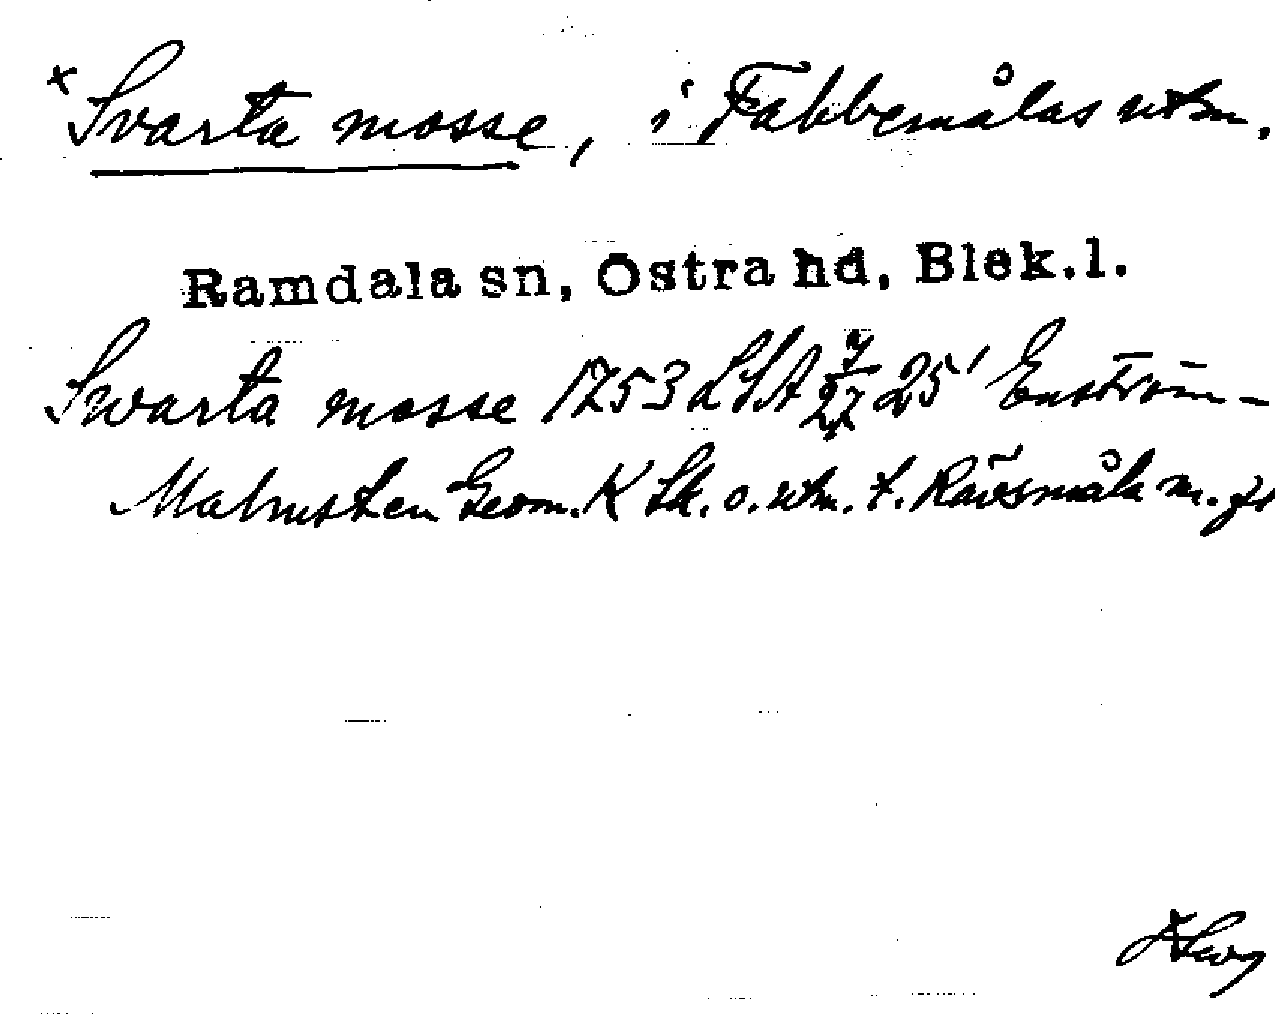 × Svarta mosse, i Fäbbemålas utm.
Ramdala sn, Östra hd, Blek.l.
Swarta mosse 1753 LSA 25' Enström-
Malmsten Geom. K Sk. o. utm. t. Rävsmåla m. fl